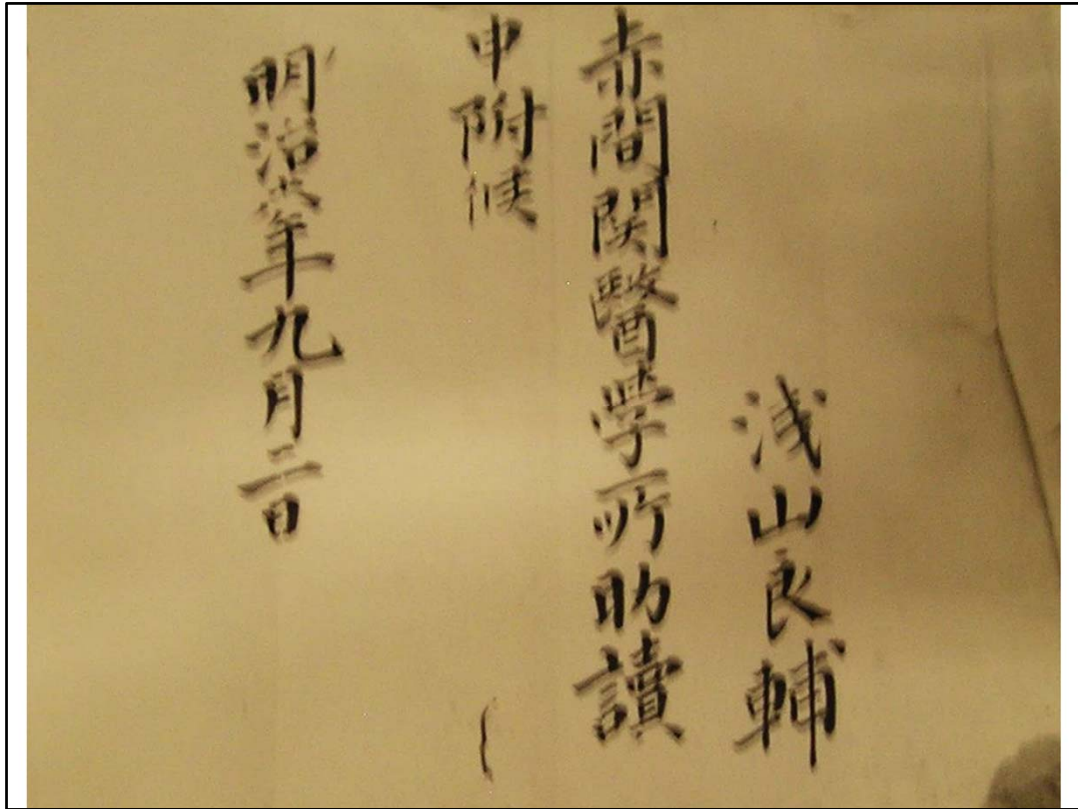 浅山良輔
赤間関醫學所助讀
申附候
明治六年九月二日